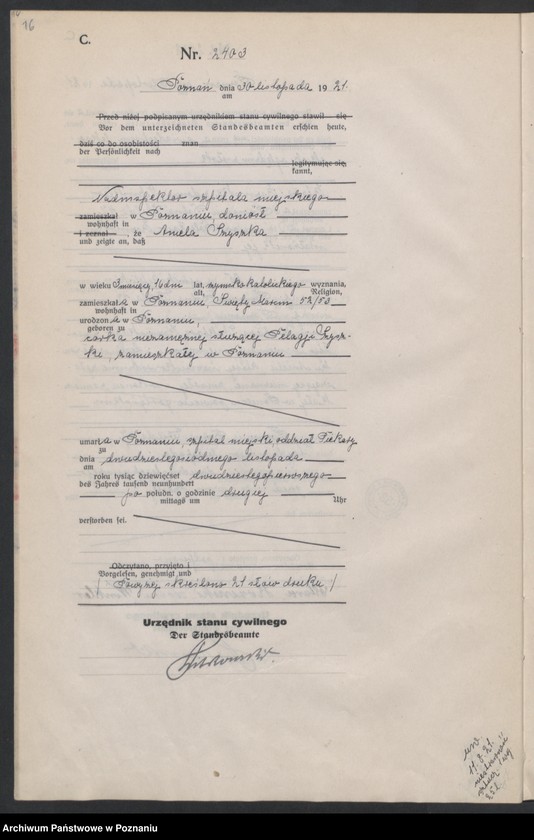 16
C.
Nr. 2403
Poznań dnia 30 listopada 1921.
am
Przed niżej podpisanym urzędnikiem stanu cywilnego stawił się
Vor dem unterzeichneten Standesbeamten erschien heute,
dziś co do osobistości znan
der Persönlichkeit nach
legitymując się,
kannt,
Nadinspektor szpitala miejskiego
zamieszkał w Poznaniu, doniósł
wohnhaft in
i zeznał, że Aniela Szyszka
und zeigte an, daß
w wieku 3 miesięcy, 16 dni lat, rzymskokatolickiego wyznania,
alt, Religion,
zamieszkała w Poznaniu, Święty Marcin 52/53
wohnhaft in
urodzona w Poznaniu,
geboren zu
córka niezamężnej służącej Pelagji Szysz-
ki, zamieszkałej w Poznaniu
umarła w Poznaniu, szpital miejski, oddział
zu
dnia dwudziestegosiódmego listopada
am
roku tysiąc dziewięćset dwudziestegopierwszego
des Jahres tausend neunhundert
po połudn. o godzinie drugiej
mittags um Uhr
verstorben sei.
Odczytano, przyjęto i
Vorgelesen, genehmigt und
/ Powyżej skreślono 21 słów druku /
Urzędnik stanu cywilnego
Der Standesbeamte
ur.
11.8.21.
25 l.
Archiwum Państwowe w Poznaniu